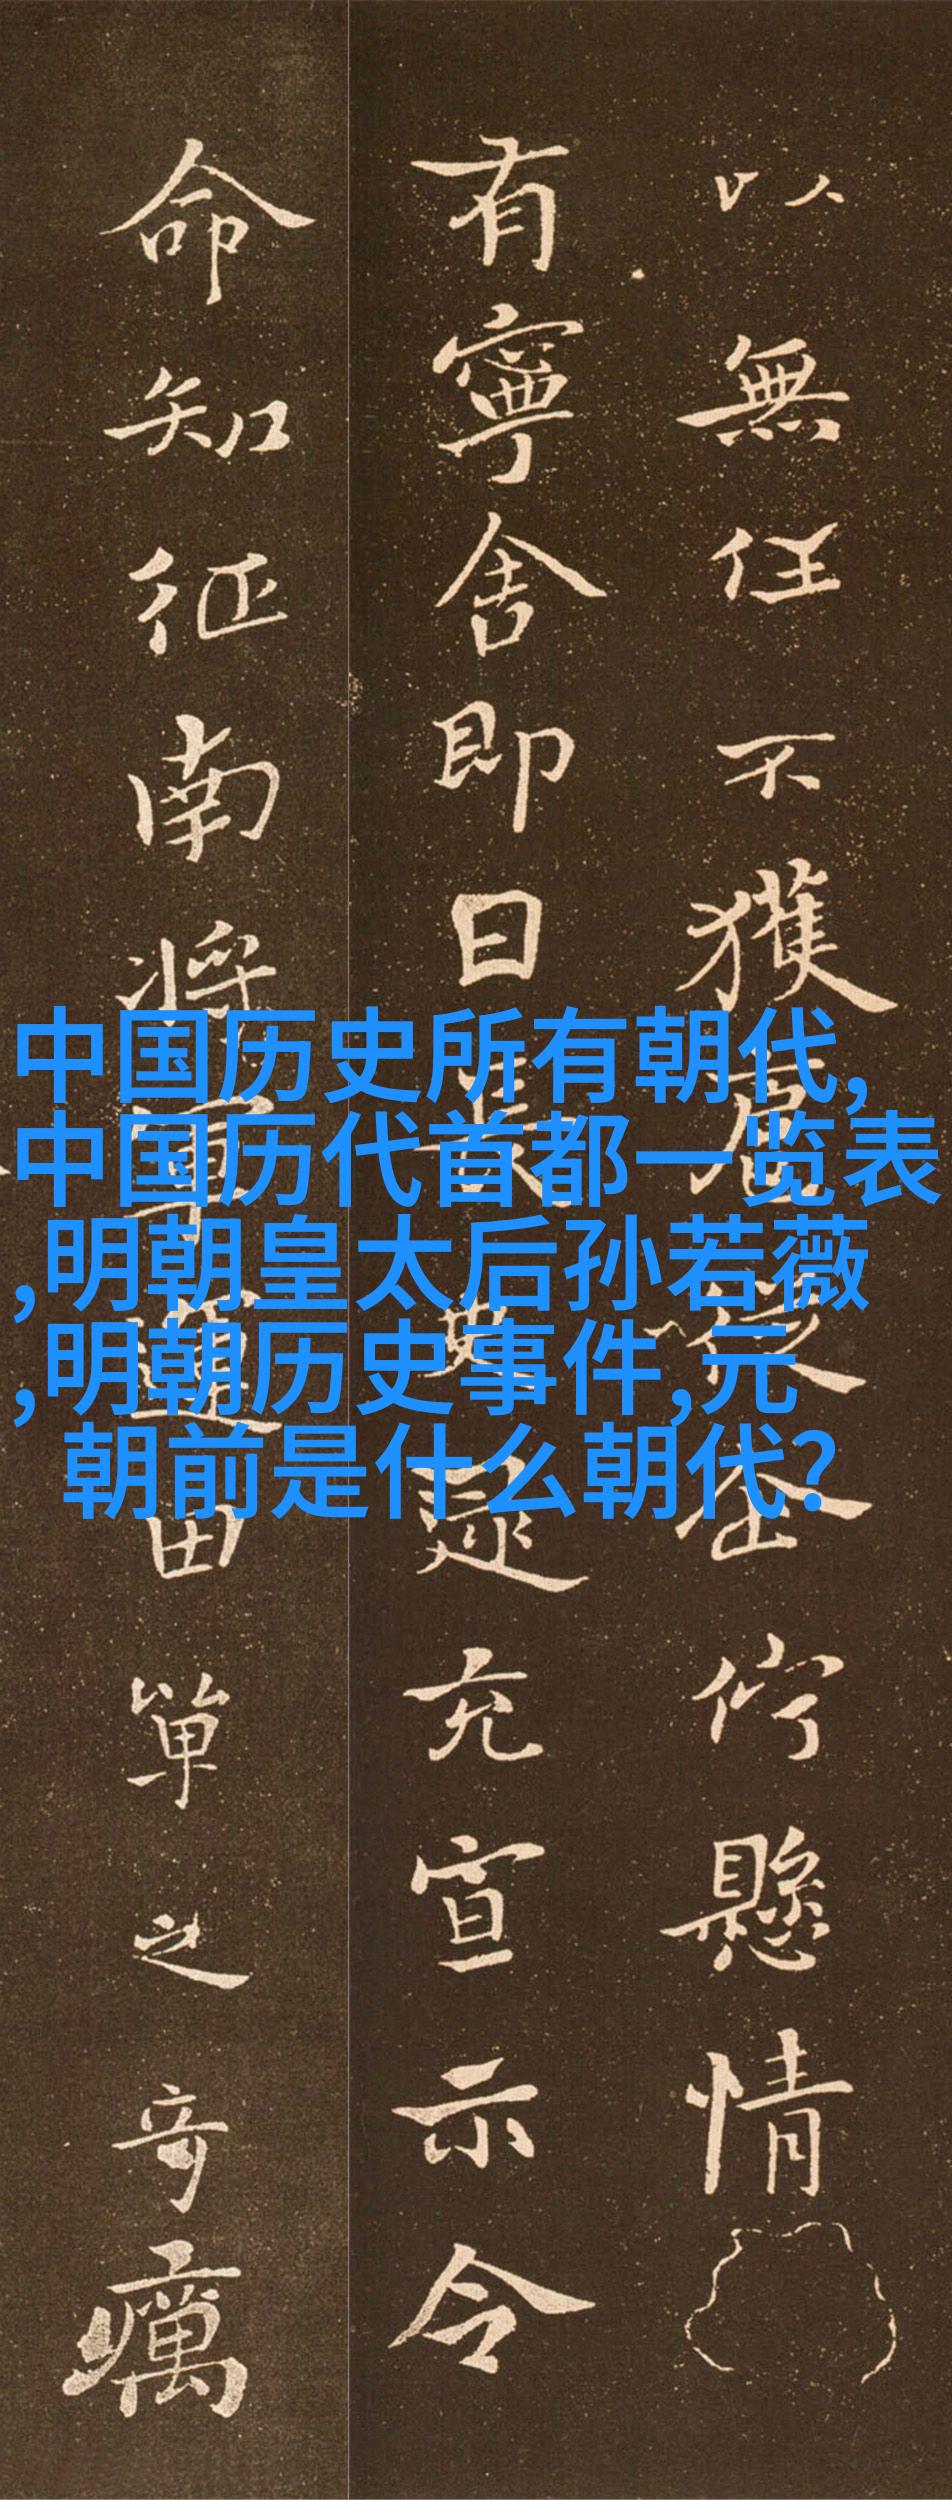 以無任不獲
佇懸情
有寧舍即日
疑充宣示令
命知征南將軍運田單之奇厲
中国历史所有朝代,
中国历代首都一览表
,明朝皇太后孙若薇
,明朝历史事件,元
朝前是什么朝代?